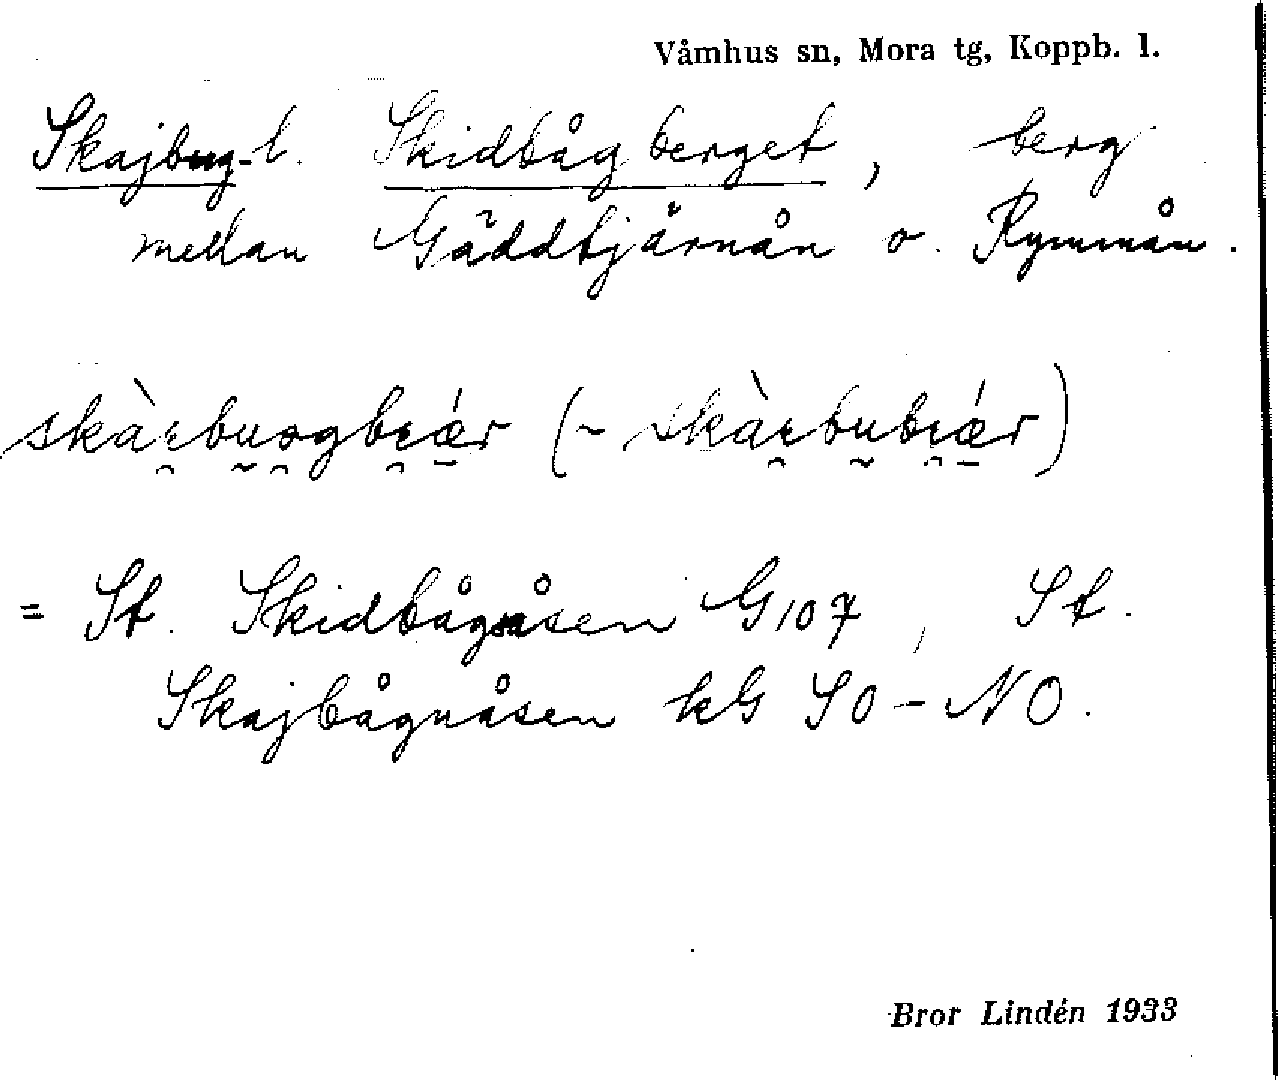 Våmhus sn, Mora tg, Koppb. l.
Skajbug- l. Skidbågberget, berg
mellan Gäddtjärnån o. Rymmån.
skàɪbuogbɪær (~ skàɪbubɪær)
= St. Skidbågsåsen G107, St.
Skajbågnåsen kG SO-NO.
Bror Lindén 1933